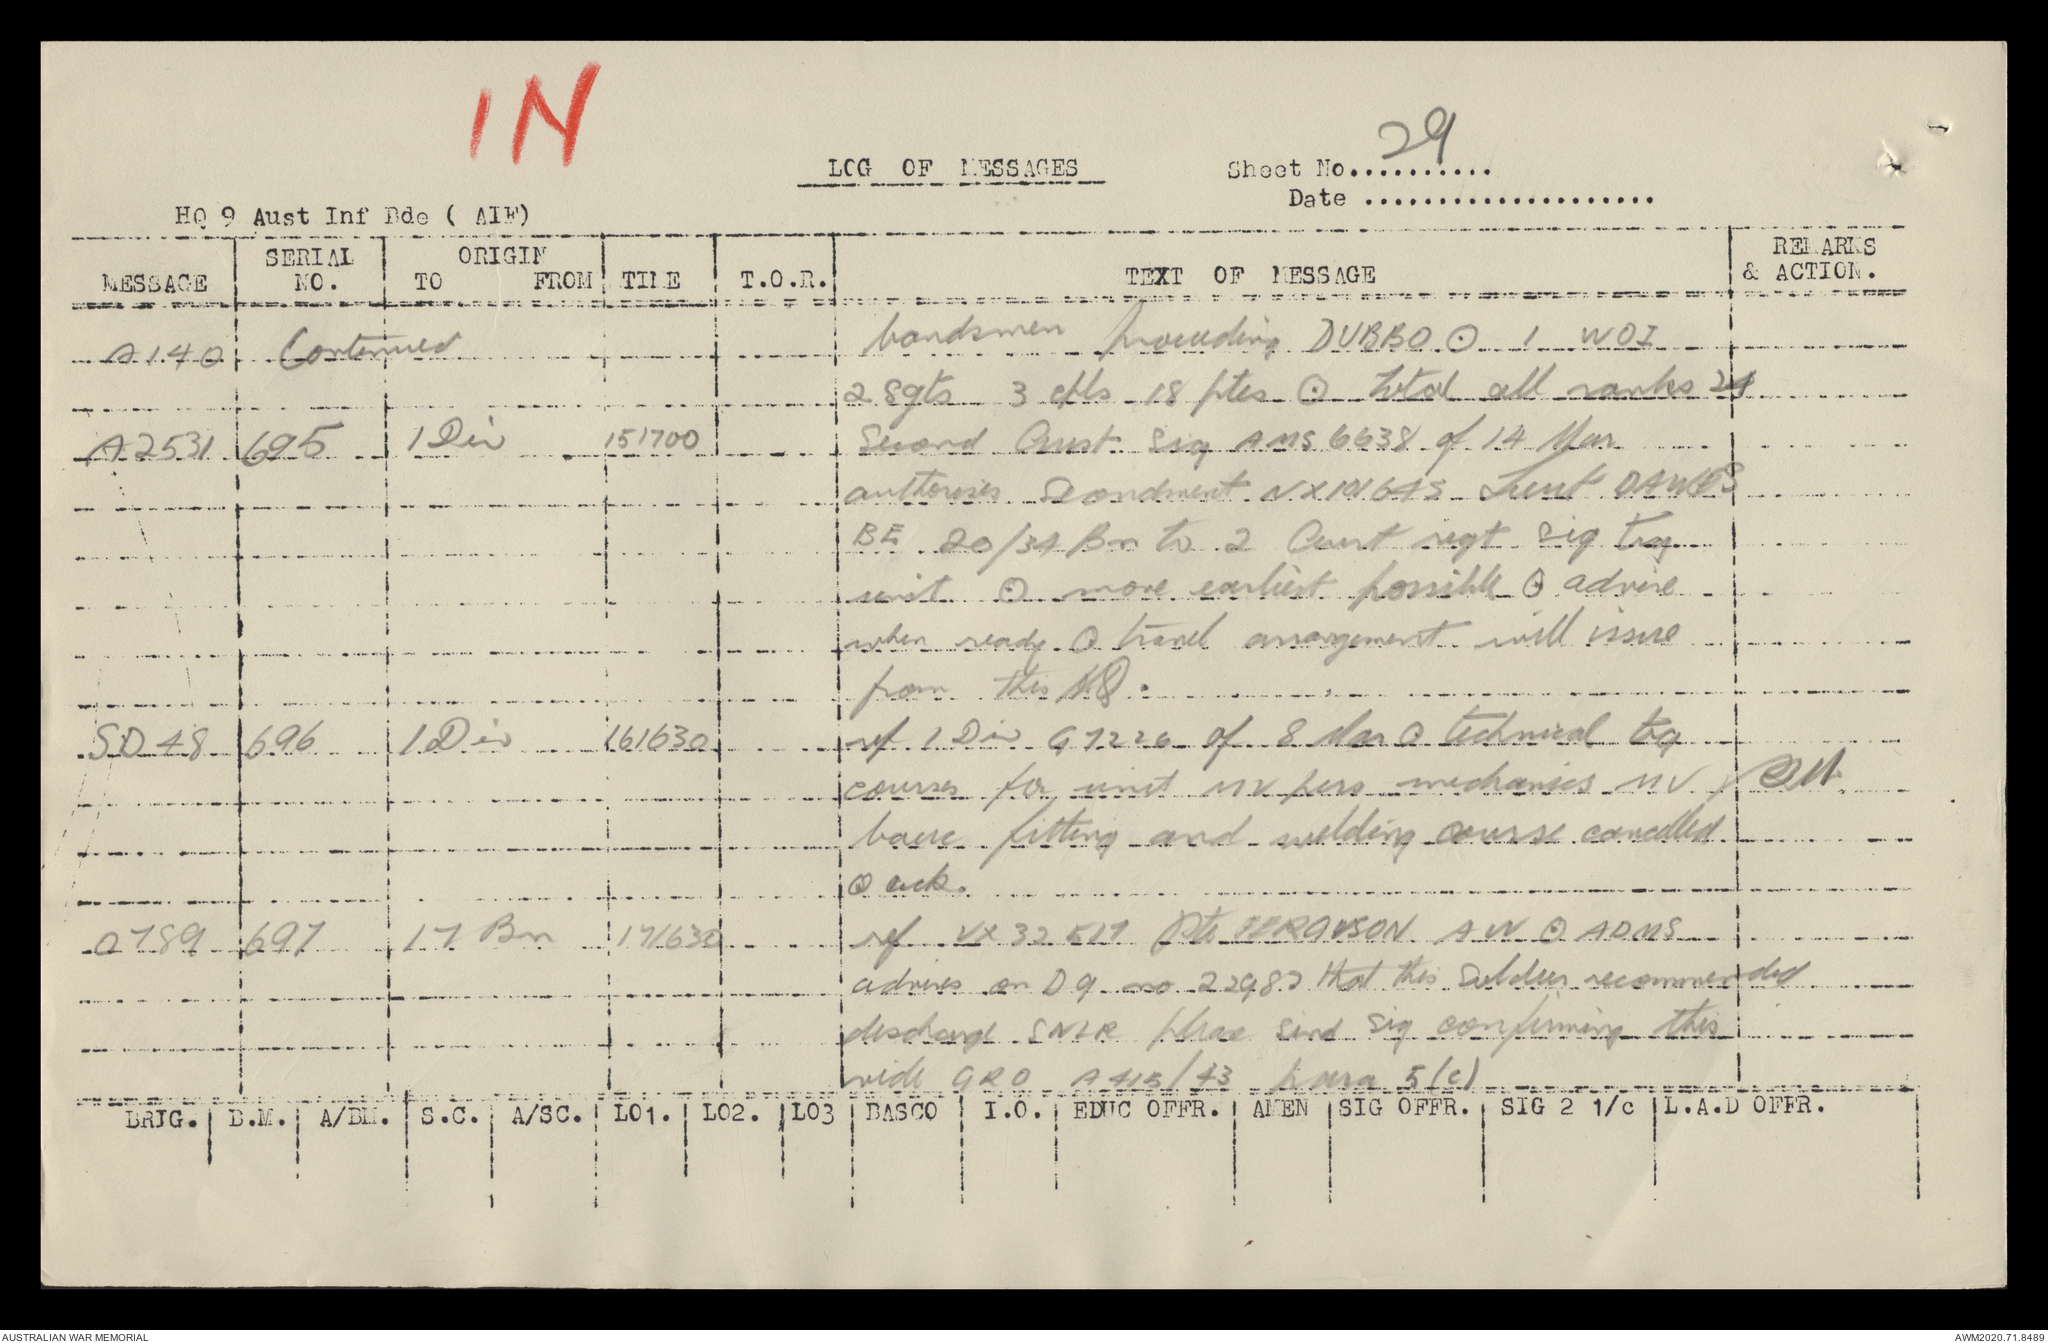 IN
29
LOG OF MESSAGES
Sheet No..........
Date ....................
HQ 9 Aust Inf Bde ( AIF)
MESSAGE SERIAL NO. ORIGIN TO FROM TIME T.O.R. TEXT OF MESSAGE REMARKS & ACTION.
A140 Continued bandsmen proceeding DUBBO ⊙ 1 WOI
2 Sgts 3 cpls 18 ptes ⊙ total all ranks 24
A2531 695 1 Div 151700 Second Aust sig AMS 6638 of 14 Mar
authorises secondment Lieut DAWES
BE 20/34 Bn to 2 Aust regt sig trg
unit ⊙ move earliest possible ⊙ advise
when ready ⊙ travel arrangement will issue
from this HQ.
SD48 696 1 Div 161630 ref 1 Div G7226 of 8 Mar ⊙ technical trg
courses for unit MV pers mechanics MV
basic fitting and welding course cancelled
⊙ ack.
O789 697 17 Bn 171630 ref VX32517 Pte FERGUSON AW ⊙ ADMS
advises on D9 no 22982 that this soldier recommended
discharge SNLR please send sig confirming this
vide GRO A415/43 para 5(c)
BRIG. B.M. A/BM. S.C. A/SC. LO1. LO2. LO3 BASCO I.O. EDUC OFFR. AMEN SIG OFFR. SIG 2 1/c L.A.D OFFR.
AUSTRALIAN WAR MEMORIAL
AWM2020.71.8489